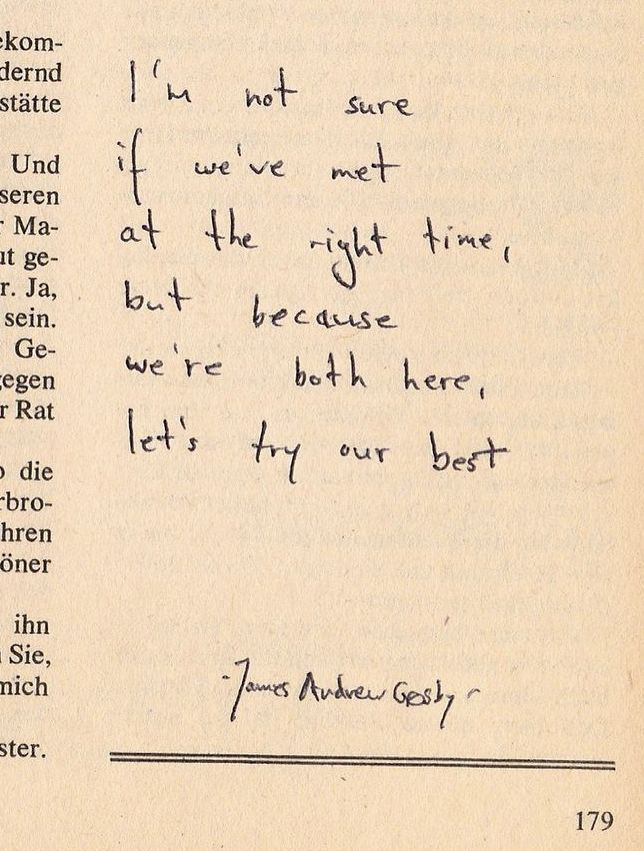 ekom-
dernd
stätte
Und
seren
r Ma-
ut ge-
r. Ja,
sein.
Ge-
gegen
r Rat
o die
rbro-
hren
öner
ihn
n Sie,
mich
ster.
I'm not sure
if we've met
at the right time,
but because
we're both here,
let's try our best
-James Andrew Crosby r
179